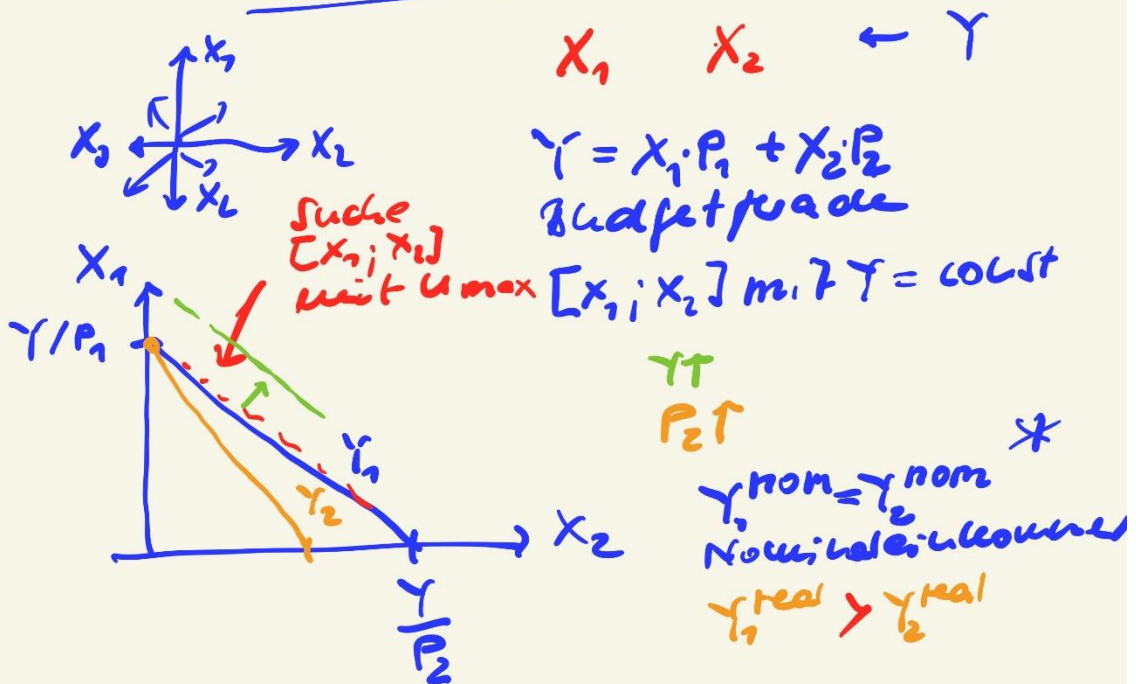 X₁ X₂ ← Y
X₁
X₃ X₂
Y = X₁·P₁ + X₂·P₂
Budgetgerade
Suche
[X₁; X₂]
mit U max
[X₁; X₂] mit Y = const
X₁
Y/P₁
Y↑
P₂↑
Y₁
Y₂
X₂
Y₁ⁿᵒᵐ = Y₂ⁿᵒᵐ *
Nominaleinkommen
Y₁ʳᵉᵃˡ > Y₂ʳᵉᵃˡ
Y
P₂